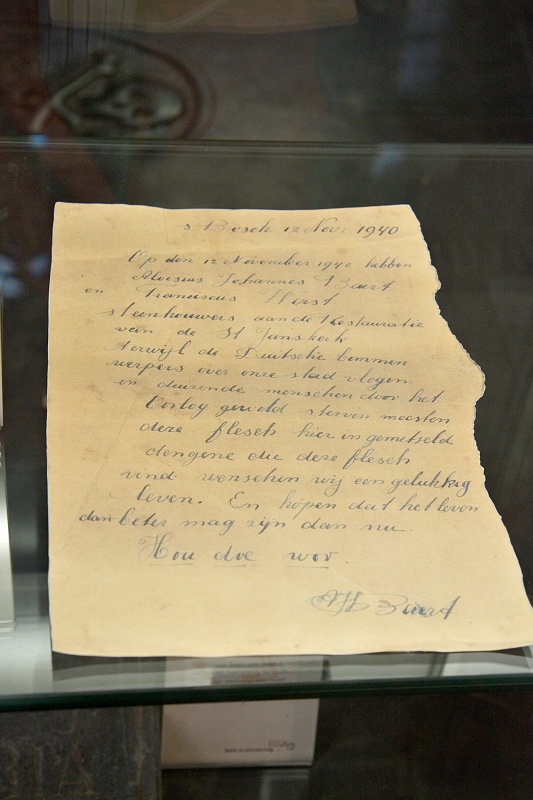 s Bosch 12 Nov: 1940
Op den 12 November 1940 hebben
Aloesius Johannes Baert
en Franciscus Horst
steenhouwers aan de Restauratie
van de St Janskerk
terwijl de Duitsche bommen
werpers over onze stad vlogen.
en duizende menschen door het
Oorlog geweld sterven moesten
deze flesch hier in gemetseld
dengene die deze flesch
vind wenschen wij een gelukkig
leven. En hopen dat het leven
dan beter mag zijn dan nu.
Hou doe wor.
AJ Baert